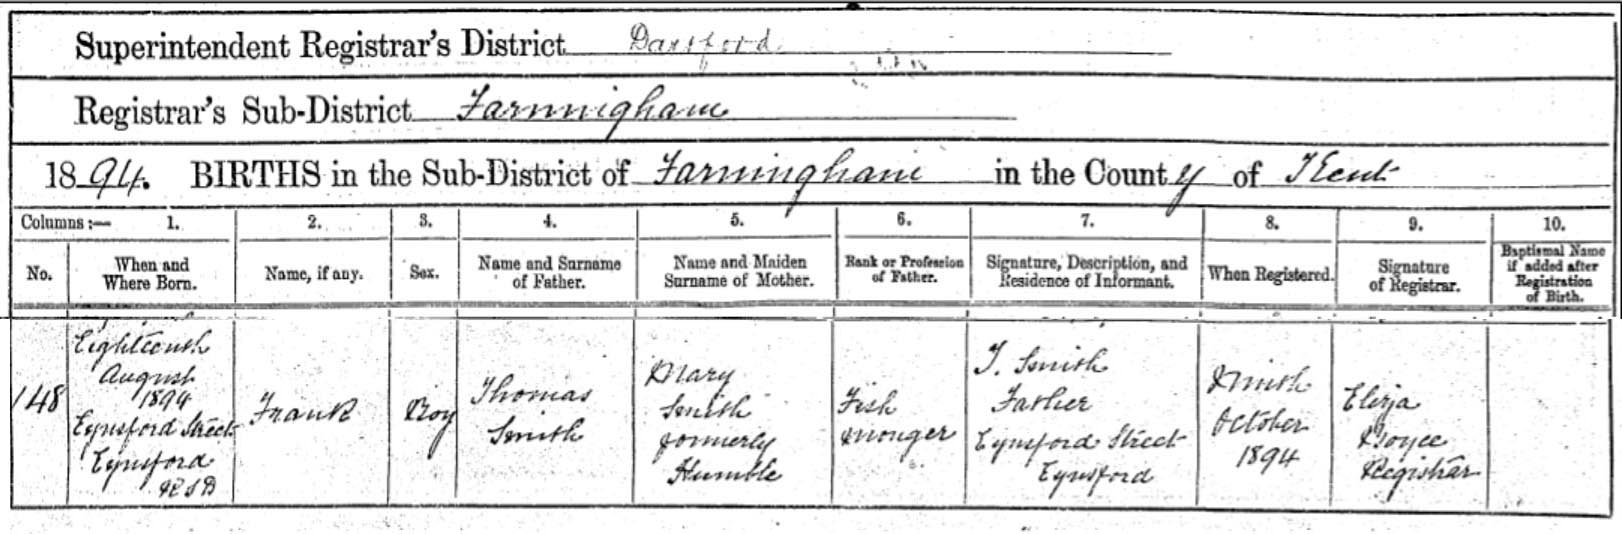 Superintendent Registrar's District Dartford
Registrar's Sub-District Farningham
1894. BIRTHS in the Sub-District of Farningham in the County of Kent
Columns :— 1. 2. 3. 4. 5. 6. 7. 8. 9. 10.
No. When and Where Born. Name, if any. Sex. Name and Surname of Father. Name and Maiden Surname of Mother. Rank or Profession of Father. Signature, Description, and Residence of Informant. When Registered. Signature of Registrar. Baptismal Name if added after Registration of Birth.
148
Eighteenth
August
1894
Eynsford Street
Eynsford
RSD
Frank
Boy
Thomas
Smith
Mary
Smith
formerly
Humble
Fish
monger
T. Smith
Father
Eynsford Street
Eynsford
Ninth
October
1894
Eliza
Joyce
Registrar